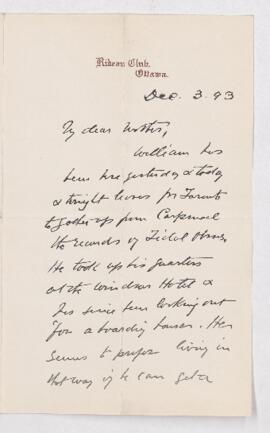 Rideau Club,
Ottawa.
Dec. 3. 93
My dear Mother,
William has
been here yesterday & today
& tonight leaves for Toronto
to gather up from Carpmael
the records of Tidal Observ
He took up his quarters
at the Windsor Hotel &
has since been looking out
for a boarding house. He
seems to prefer living in
that way if he can get a